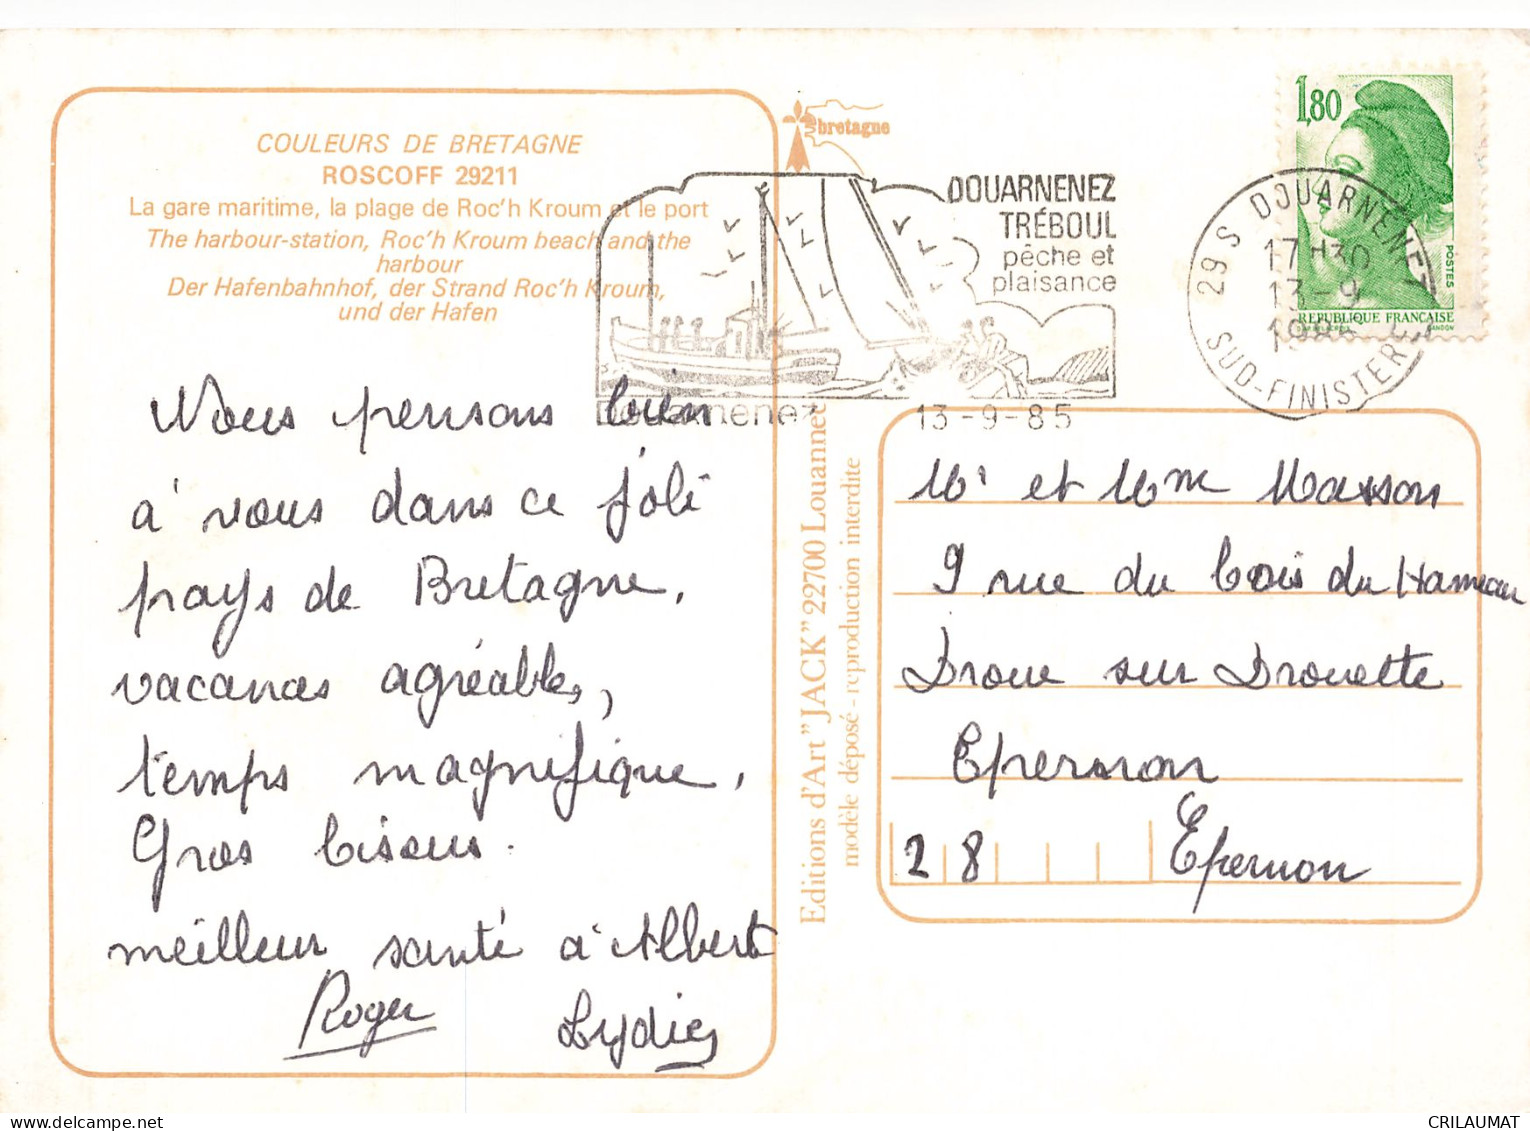 COULEURS DE BRETAGNE
ROSCOFF 29211
La gare maritime, la plage de Roc'h Kroum et le port
The harbour-station, Roc'h Kroum beach and the
harbour
Der Hafenbahnhof, der Strand Roc'h Kroum,
und der Hafen
Nous pensons bien
à vous dans ce joli
pays de Bretagne,
vacances agréables,
temps magnifique,
Gros bisous.
meilleur santé à Albert
Roger
Lydie
bretagne
DOUARNENEZ
TRÉBOUL
pêche et
plaisance
Douarnenez
13-9-85
29 S DOUARNENEZ
17H30
13-9
SUD-FINISTERE
1,80
POSTES
REPUBLIQUE FRANCAISE
GANDON
Editions d'Art "JACK" 22700 Louannec
modèle déposé - reproduction interdite
Mr et Mme Masson
9 rue du bois du Hameau
Droue sur Drouette
Epernon
28 Epernon
CRILAUMAT